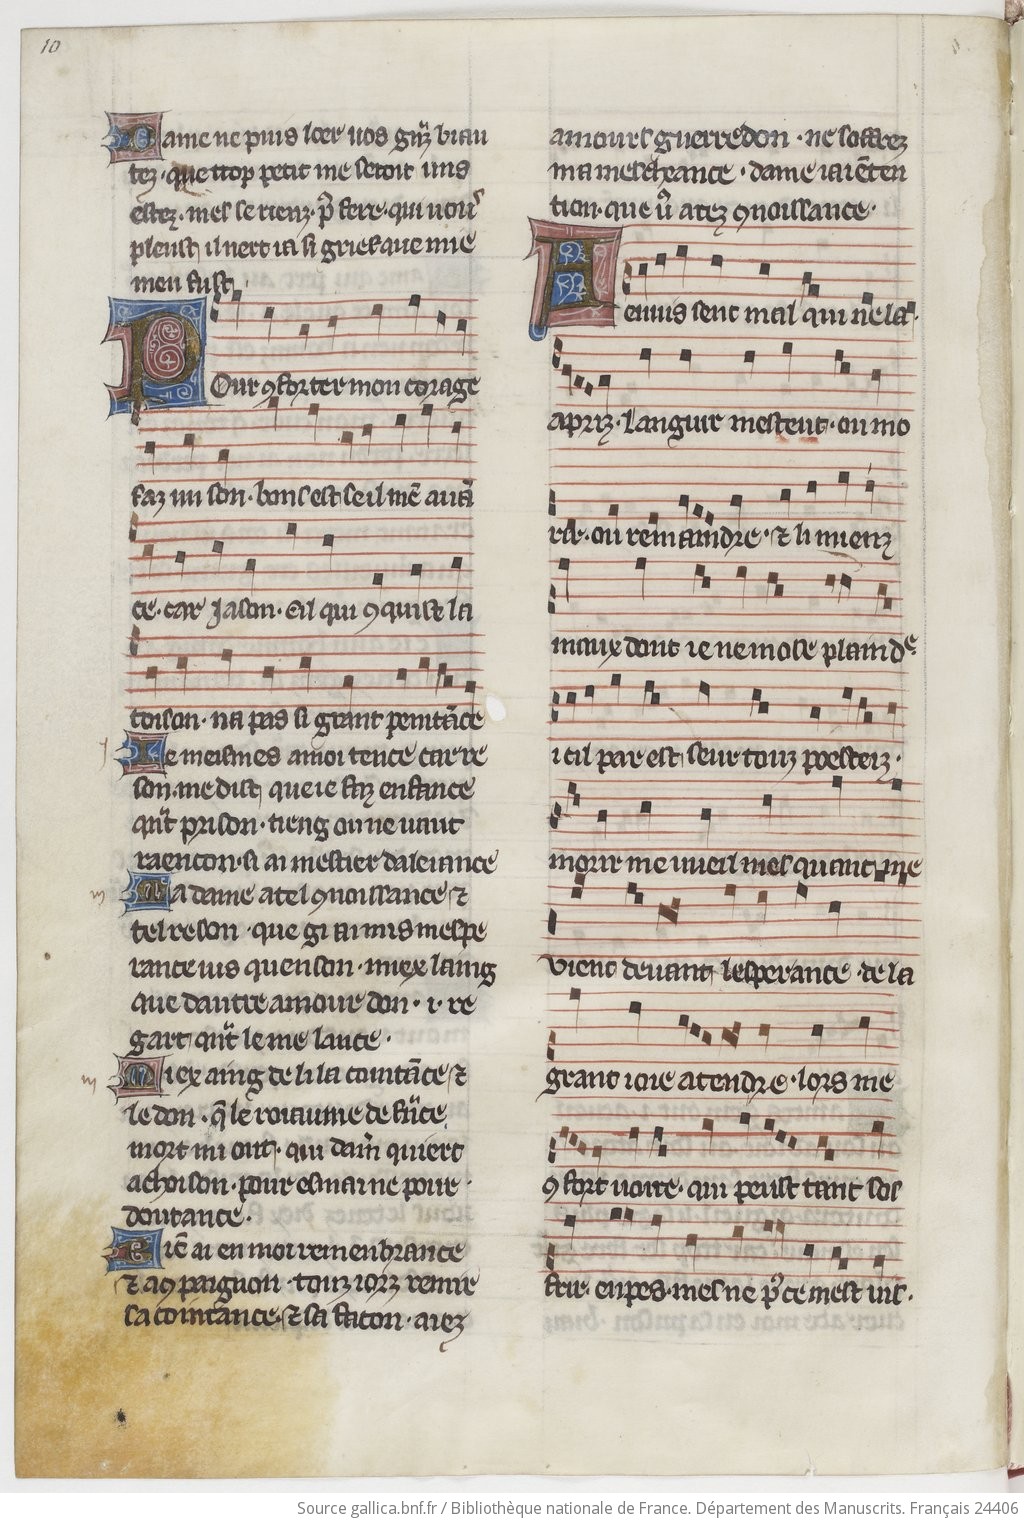 10
Dame ne puis loer uos granz biau
tez. que trop petit me seroit uns
estez. mes se rienz. p̄ fere. qui uous
pleust il nert ia si griefque mie
meu fust.
POur ꝯforter mon corage
faz un son. bons est se il mē auā
ce. car Jason. Cil qui ꝯquist la
toison. na pas si grant penitāce
Ie meismes a moi tence car re
son. me dist que ie faz enfance
qn̄t prison. tieng ou ne uaut
raencon. si ai mestier daleiance
Ma dame a tel ꝯnoissance ⁊
tel reson que gi ai mis mespe
rance uis quen son. miex laing
que dautre amour don. i. re
gart qn̄t le me lance.
Miex aing de li la cointāce ⁊
le don. q̄ le roiaume de frāce
mort mi ont. qui dam̄ quiert
achoison. pour esmai ne pour
doutance.
Biē ai en moi remenbrance
⁊ a ꝯpaignon. touz iorz remir
sa cointance. ⁊ sa facon. aiez
amours guerredon. ne soffrez
ma mescheance. dame iai ēten
tion. que ū arez ꝯnoissance.
Ennis sent mal qui ne la
apriz. Languir mestent. ou mo
rir. ou remaindre. ⁊ li mienz
maux dont ie ne mose plaindre.
i cil par est seur touz poesteiz.
morir me uueil mes quant me
vient deuant lesperance de la
grant ioie atendre. lors me
ꝯfort uoire. qui peust tant sos
frir. en pes. mes ne p̄ ce mest uis.
Source gallica.bnf.fr / Bibliothèque nationale de France. Département des Manuscrits. Français 24406